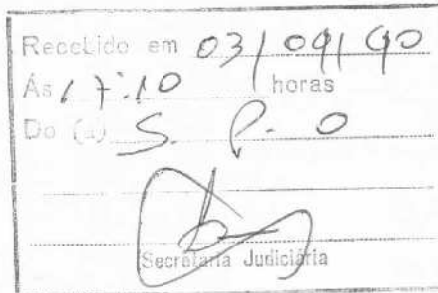 Recebido em 03/09/90
Ás 17:10 horas
Do (a) S. P. O
Secretaria Judiciária